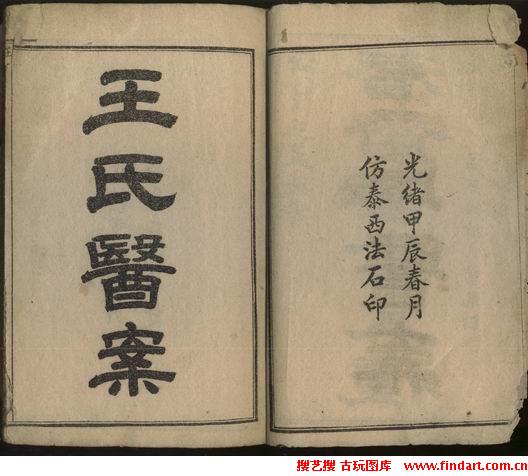 光緒甲辰春月
仿泰西法石印
王氏醫案
搜艺搜 古玩图库 www.findart.com.cn